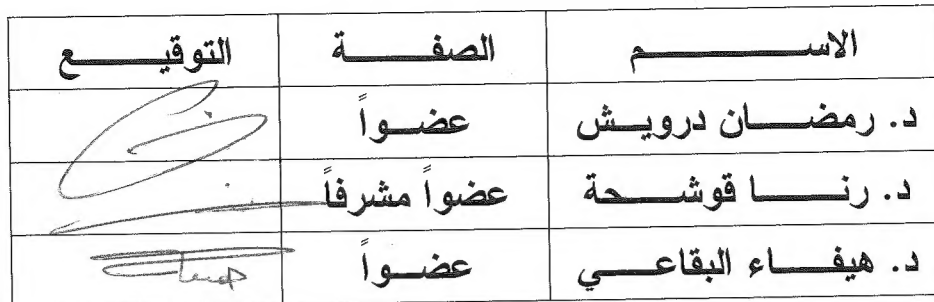 الاسم الصفة التوقيع
د. رمضان درويش عضواً
د. رنا قوشحة عضواً مشرفاً
د. هيفاء البقاعي عضواً